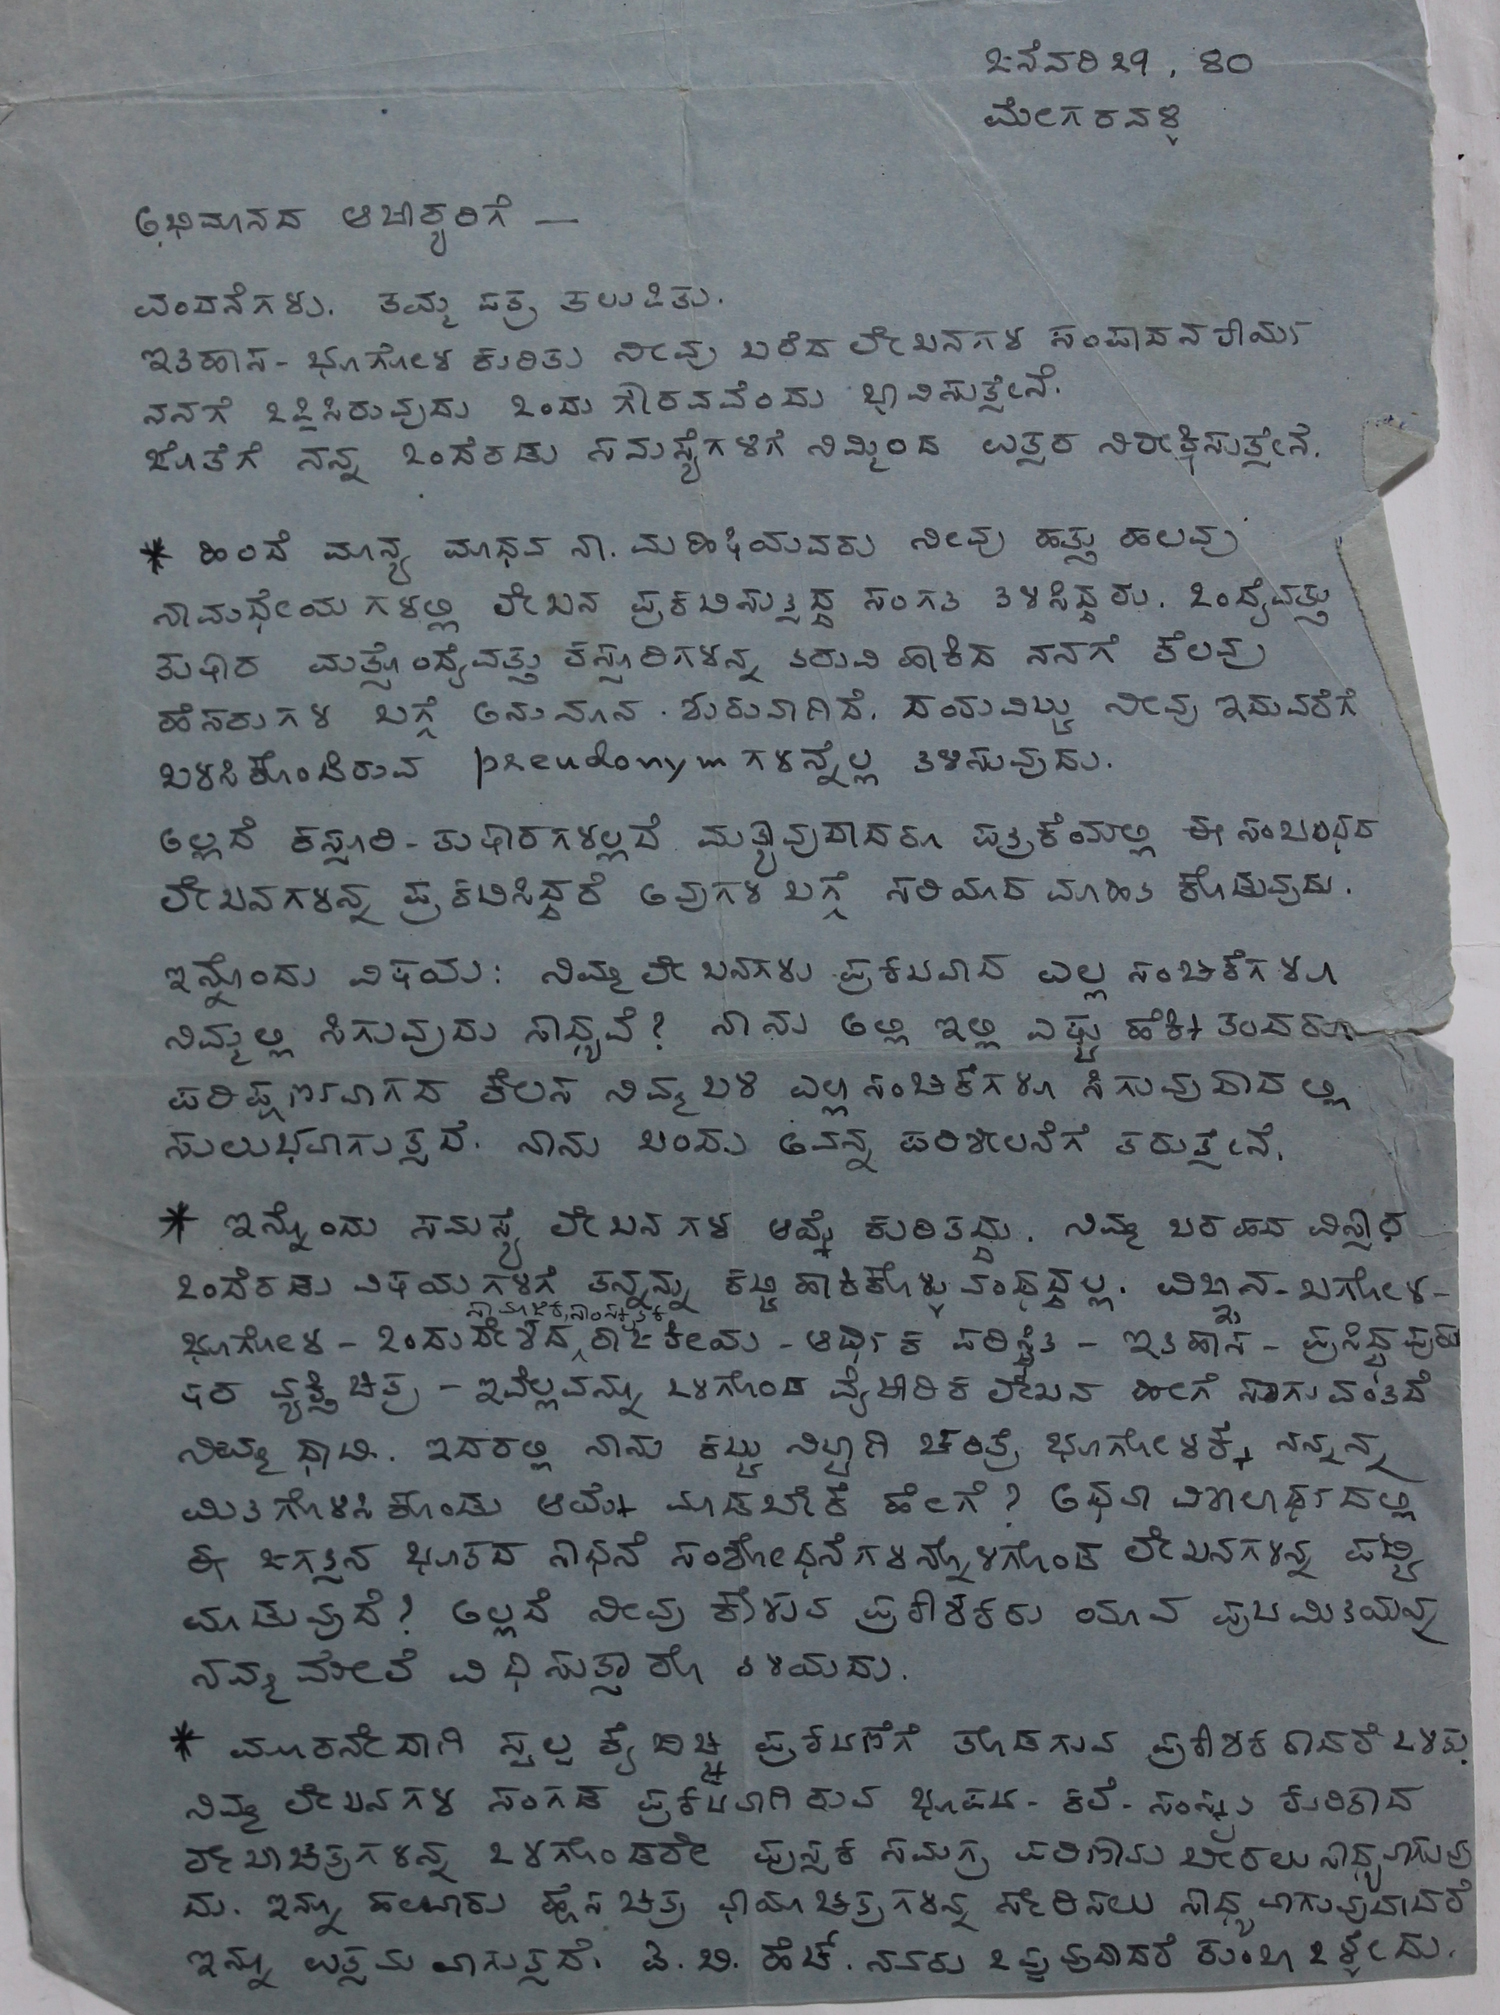 ಜನೆವರಿ ೨೧, ೮೦
ಮೇಗರವಳ್ಳಿ
ಅಭಿಮಾನದ ಆಚಾರ್ಯರಿಗೆ —
ವಂದನೆಗಳು. ತಮ್ಮ ಪತ್ರ ತಲುಪಿತು.
ಇತಿಹಾಸ - ಭೂಗೋಳ ಕುರಿತು ನೀವು ಬರೆದ ಲೇಖನಗಳ ಸಂಪಾದನ ಕಾರ್ಯ
ನನಗೆ ಒಪ್ಪಿಸಿರುವುದು ಒಂದು ಗೌರವವೆಂದು ಭಾವಿಸುತ್ತೇನೆ.
ಜೊತೆಗೆ ನನ್ನ ಒಂದೆರಡು ಸಮಸ್ಯೆಗಳಿಗೆ ನಿಮ್ಮಿಂದ ಉತ್ತರ ನಿರೀಕ್ಷಿಸುತ್ತೇನೆ.
* ಹಿಂದೆ ಮಾನ್ಯ ಮಾಧವ ನಾ. ಮಹಿಷಿಯವರು ನೀವು ಹತ್ತು ಹಲವು
ನಾಮಧೇಯಗಳಲ್ಲಿ ಲೇಖನ ಪ್ರಕಟಿಸುತ್ತಿದ್ದ ಸಂಗತಿ ತಿಳಿಸಿದ್ದರು. ಒಂದೈವತ್ತು
ತುಷಾರ ಮತ್ತೊಂದೈವತ್ತು ಕಸ್ತೂರಿಗಳನ್ನ ತಿರುವಿ ಹಾಕಿದ ನನಗೆ ಕೆಲವು
ಹೆಸರುಗಳ ಬಗ್ಗೆ ಅನುಮಾನ ಶುರುವಾಗಿದೆ. ದಯವಿಟ್ಟು ನೀವು ಇದುವರೆಗೆ
ಬಳಸಿಕೊಂಡಿರುವ pseudonym ಗಳನ್ನೆಲ್ಲ ತಿಳಿಸುವುದು.
ಅಲ್ಲದೆ ಕಸ್ತೂರಿ - ತುಷಾರಗಳಲ್ಲದೆ ಮತ್ಯಾವುದಾದರೂ ಪತ್ರಿಕೆಯಲ್ಲಿ ಈ ಸಂಬಂಧದ
ಲೇಖನಗಳನ್ನ ಪ್ರಕಟಿಸಿದ್ದರೆ ಅವುಗಳ ಬಗ್ಗೆ ಸರಿಯಾದ ಮಾಹಿತಿ ಕೊಡುವುದು.
ಇನ್ನೊಂದು ವಿಷಯ: ನಿಮ್ಮ ಲೇಖನಗಳು ಪ್ರಕಟವಾದ ಎಲ್ಲ ಸಂಚಿಕೆಗಳೂ
ನಿಮ್ಮಲ್ಲಿ ಸಿಗುವುದು ಸಾಧ್ಯವೆ? ನಾನು ಅಲ್ಲಿ ಇಲ್ಲಿ ಎಷ್ಟು ಹೆಕ್ಕಿ ತಂದರೂ
ಪರಿಪೂರ್ಣವಾಗದ ಕೆಲಸ ನಿಮ್ಮ ಬಳಿ ಎಲ್ಲ ಸಂಚಿಕೆಗಳೂ ಸಿಗುವುದಾದಲ್ಲಿ
ಸುಲಭವಾಗುತ್ತದೆ. ನಾನು ಬಂದು ಅವನ್ನ ಪರಿಶೀಲನೆಗೆ ತರುತ್ತೇನೆ.
* ಇನ್ನೊಂದು ಸಮಸ್ಯೆ ಲೇಖನಗಳ ಆಯ್ಕೆ ಕುರಿತದ್ದು. ನಿಮ್ಮ ಬರಹದ ವಿಸ್ತಾರ
ಒಂದೆರಡು ವಿಷಯಗಳಿಗೆ ತನ್ನನ್ನು ಕಟ್ಟಿ ಹಾಕಿಕೊಳ್ಳುವಂಥದ್ದಲ್ಲ. ವಿಜ್ಞಾನ - ಖಗೋಳ -
ಸಾಮಾಜಿಕ, ಸಾಂಸ್ಕೃತಿಕ
ಭೂಗೋಳ - ಒಂದು ದೇಶದ ರಾಜಕೀಯ - ಆರ್ಥಿಕ ಪರಿಸ್ಥಿತಿ - ಇತಿಹಾಸ - ಪ್ರಸಿದ್ಧ ಪುರು
ಷರ ವ್ಯಕ್ತಿ ಚಿತ್ರ - ಇವೆಲ್ಲವನ್ನು ಒಳಗೊಂಡ ವೈಚಾರಿಕ ಲೇಖನ ಹೀಗೆ ಸಾಗುವಂತಿದೆ
ನಿಮ್ಮ ಧಾಟಿ. ಇದರಲ್ಲಿ ನಾನು ಕಟ್ಟುನಿಟ್ಟಾಗಿ ಚರಿತ್ರೆ ಭೂಗೋಳಕ್ಕೆ ನನ್ನನ್ನ
ಮಿತಿಗೊಳಿಸಿಕೊಂಡು ಆಯ್ಕೆ ಮಾಡಬೇಕೆ ಹೇಗೆ? ಅಥವಾ ವಿಶಾಲಾರ್ಥದಲ್ಲಿ
ಈ ಜಗತ್ತಿನ ಭೂತದ ಸಾಧನೆ ಸಂಶೋಧನೆಗಳನ್ನೊಳಗೊಂಡ ಲೇಖನಗಳನ್ನ ಪಟ್ಟಿ
ಮಾಡುವುದೆ? ಅಲ್ಲದೆ ನೀವು ಕೇಳುವ ಪ್ರಕಾಶಕರು ಯಾವ ಪುಟಮಿತಿಯನ್ನ
ನಮ್ಮ ಮೇಲೆ ವಿಧಿಸುತ್ತಾರೋ ತಿಳಿಯದು.
* ಮೂರನೇದಾಗಿ ಸ್ವಲ್ಪ ಕೈ ಬಿಚ್ಚಿ ಪ್ರಕಟಣೆಗೆ ತೊಡಗುವ ಪ್ರಕಾಶಕರಾದರೆ ಒಳ್ಳೆದು.
ನಿಮ್ಮ ಲೇಖನಗಳ ಸಂಗಡ ಪ್ರಕಟವಾಗಿರುವ ಭೂಪಟ - ಕಲೆ - ಸಂಸ್ಕೃತಿ ಕುರಿತಾದ
ರೇಖಾಚಿತ್ರಗಳನ್ನ ಒಳಗೊಂಡರೇ ಪುಸ್ತಕ ಸಮಗ್ರ ಪರಿಣಾಮ ಬೀರಲು ಸಾಧ್ಯವಾಗುವು
ದು. ಇನ್ನು ಹಲವಾರು ಹೊಸ ಚಿತ್ರ ಛಾಯಾಚಿತ್ರಗಳನ್ನ ಸೇರಿಸಲು ಸಾಧ್ಯವಾಗುವುದಾದರೆ
ಇನ್ನು ಉತ್ತಮವಾಗುತ್ತದೆ. ಪಿ. ಬಿ. ಹೆಚ್. ನವರು ಒಪ್ಪುವುದಾದರೆ ತುಂಬಾ ಒಳ್ಳೇದು.